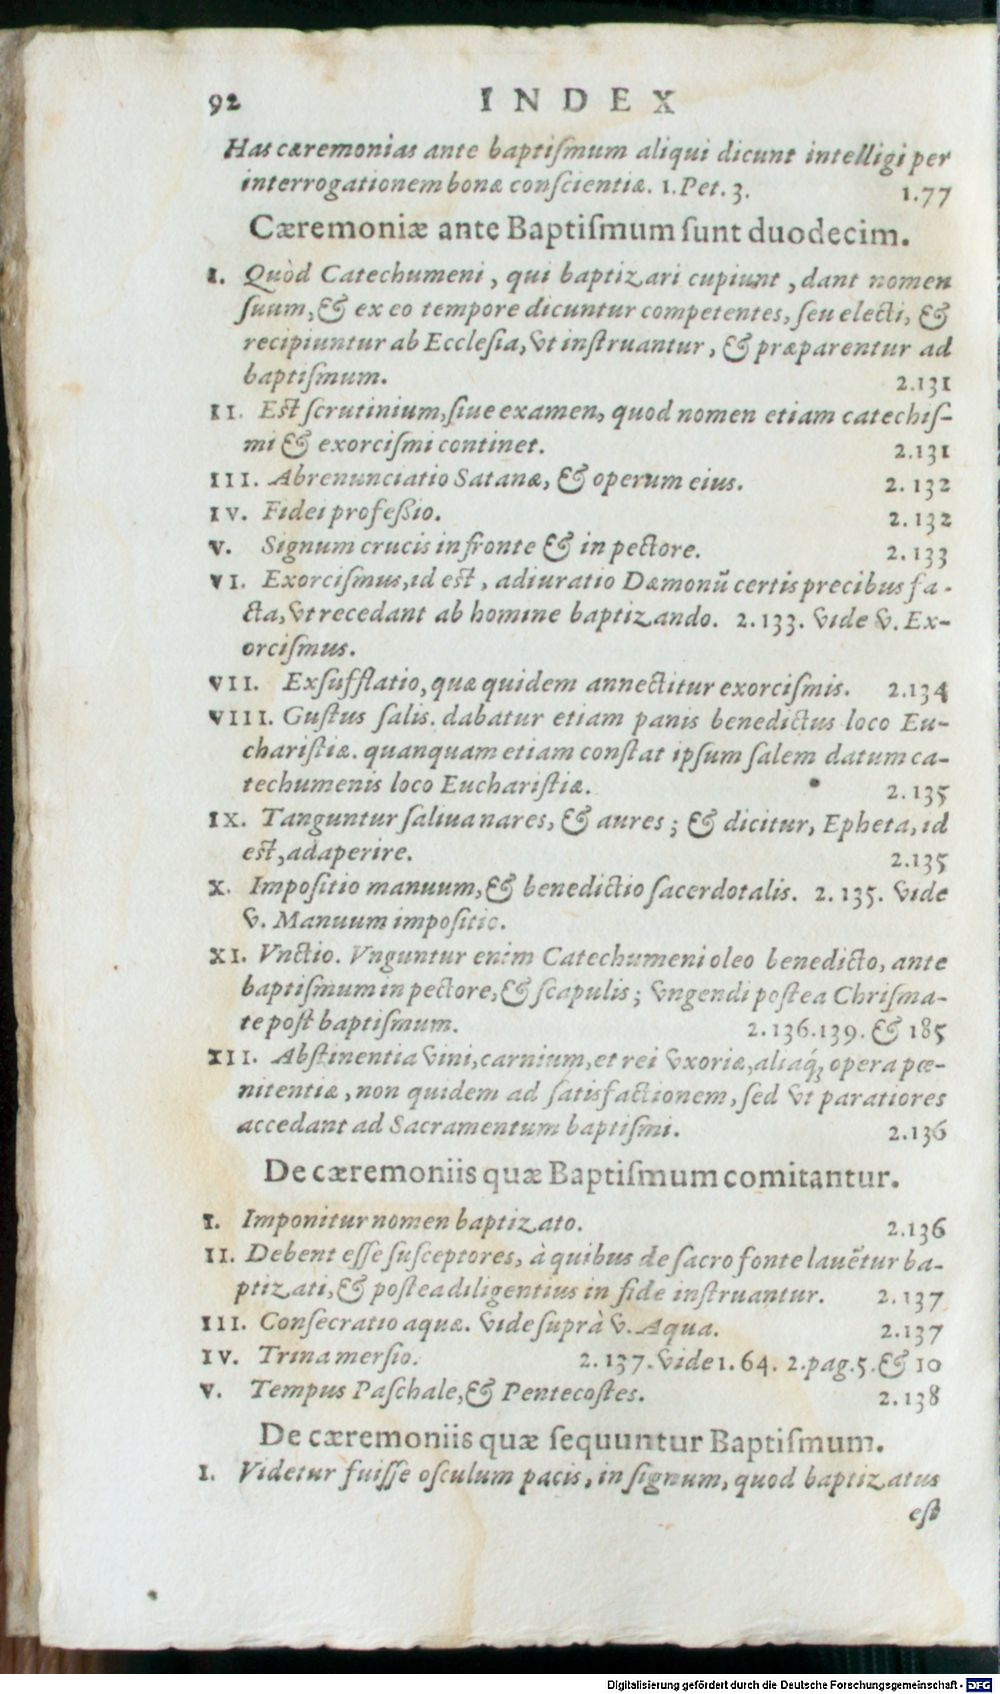 92 INDEX
Has cæremonias ante baptiſmum aliqui dicunt intelligi per
interrogationem bonæ conſcientiæ. 1. Pet. 3. 1.77
Cæremoniæ ante Baptiſmum ſunt duodecim.
I. Quòd Catechumeni, qui baptizari cupiunt, dant nomen
ſuum, & ex eo tempore dicuntur competentes, ſeu electi, &
recipiuntur ab Eccleſia, vt inſtruantur, & præparentur ad
baptiſmum. 2.131
II. Eſt ſcrutinium, ſiue examen, quod nomen etiam catechiſ-
mi & exorciſmi continet. 2.131
III. Abrenunciatio Satanæ, & operum eius. 2. 132
IV. Fidei profeßio. 2. 132
V. Signum crucis in fronte & in pectore. 2. 133
VI. Exorciſmus, id eſt, adiuratio Dæmonũ certis precibus fa-
cta, vt recedant ab homine baptizando. 2.133. vide v. Ex-
orciſmus.
VII. Exſufflatio, quæ quidem annectitur exorciſmis. 2.134
VIII. Guſtus ſalis. dabatur etiam panis benedictus loco Eu-
chariſtiæ. quanquam etiam conſtat ipſum ſalem datum ca-
techumenis loco Euchariſtiæ. 2.135
IX. Tanguntur ſaliua nares, & aures; & dicitur, Epheta, id
eſt, adaperire. 2.135
X. Impoſitio manuum, & benedictio ſacerdotalis. 2. 135. vide
v. Manuum impoſitio.
XI. Vnctio. Vnguntur enim Catechumeni oleo benedicto, ante
baptiſmum in pectore, & ſcapulis; vngendi poſtea Chriſma-
te poſt baptiſmum. 2.136.139. & 185
XII. Abſtinentia vini, carnium, et rei vxoriæ, aliaq́; opera pœ-
nitentiæ, non quidem ad ſatisfactionem, ſed vt paratiores
accedant ad Sacramentum baptiſmi. 2.136
De cæremoniis quæ Baptiſmum comitantur.
I. Imponitur nomen baptizato. 2.136
II. Debent eſſe ſuſceptores, à quibus de ſacro fonte lauẽtur ba-
ptizati, & poſtea diligentius in fide inſtruantur. 2.137
III. Conſecratio aquæ. vide ſuprà v. Aqua. 2.137
IV. Trina merſio. 2. 137. vide 1. 64. 2. pag. 5. & 10
V. Tempus Paſchale, & Pentecoſtes. 2.138
De cæremoniis quæ ſequuntur Baptiſmum.
I. Videtur fuiſſe oſculum pacis, in ſignum, quod baptizatus
eſt
Digitalisierung gefördert durch die Deutsche Forschungsgemeinschaft - DFG